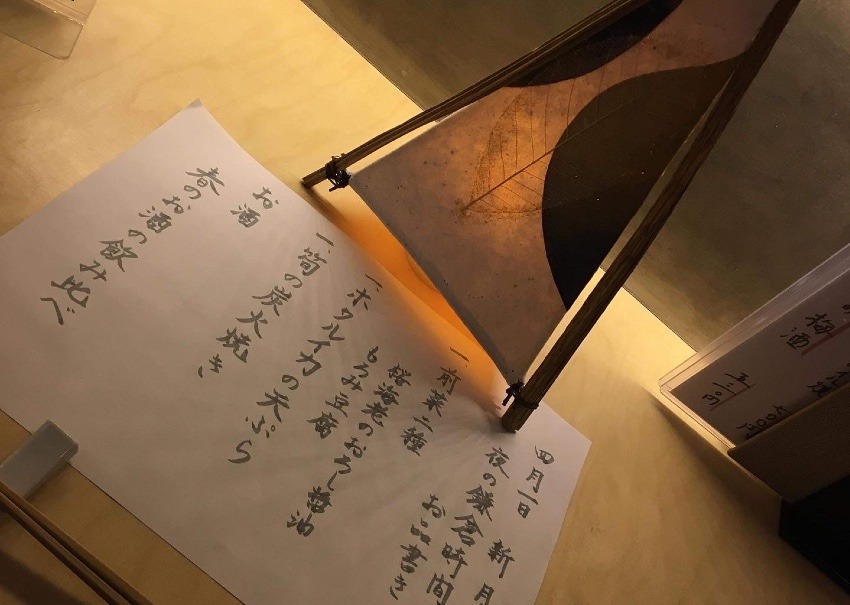 四月一日 新月
夜の鎌倉時間 お品書き
一、前菜二種
桜海老のおろし醤油
もろみ豆腐
一、ホタルイカの天ぷら
一、筍の炭火焼き
お酒
春のお酒の飲み比べ
梅酒